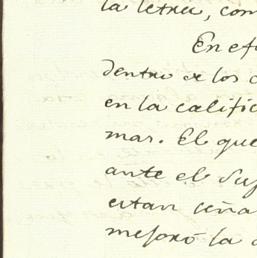 la letra, com
En ef
dentro de los c
en la califica
mar. El que
ante el Sup
estan seña
mejoró la a